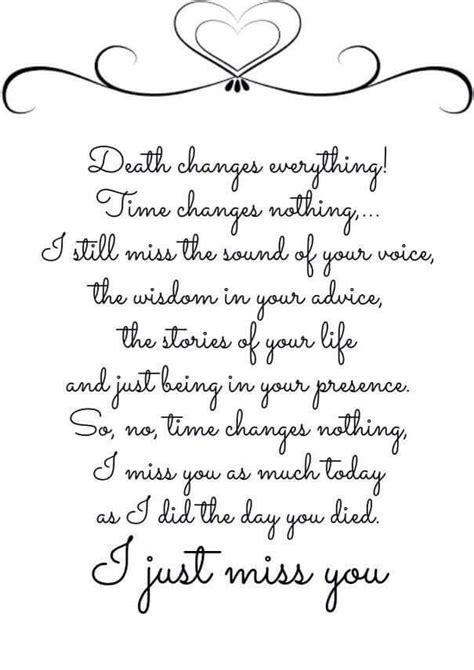 Death changes everything!
Time changes nothing,...
I still miss the sound of your voice,
the wisdom in your advice,
the stories of your life
and just being in your presence.
So, no, time changes nothing,
I miss you as much today
as I did the day you died.
I just miss you